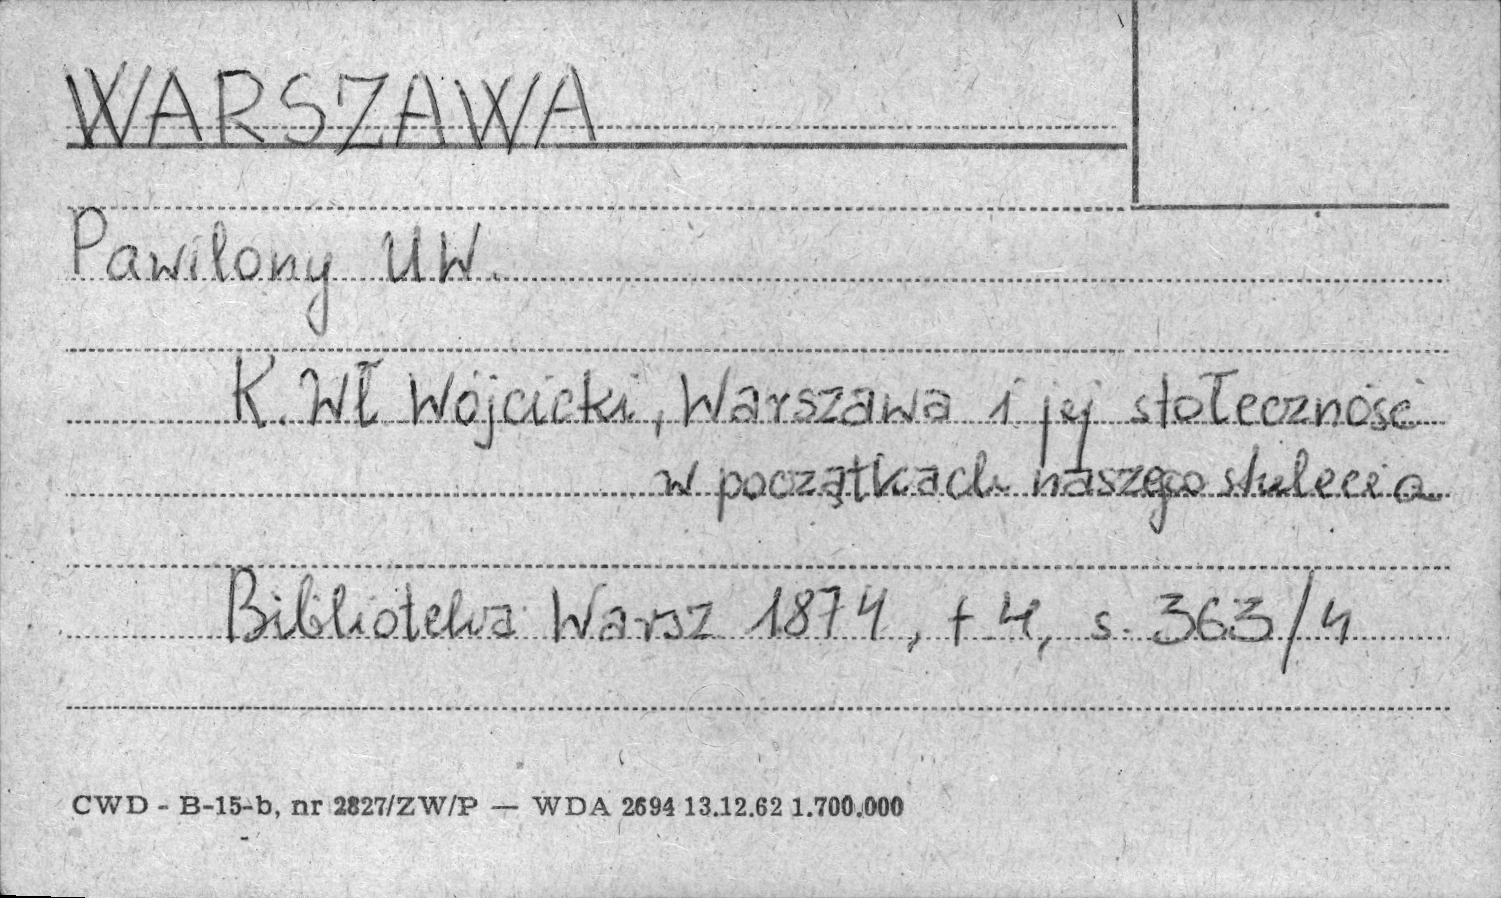 WARSZAWA
Pawilony UW.
K. Wł Wójcicki, Warszawa i jej stołeczność
w początkach naszego stulecia
Biblioteka Warsz 1874, t 4, s. 363/4
CWD - B-15-b, nr 2827/ZW/P — WDA 2694 13.12.62 1.700.000